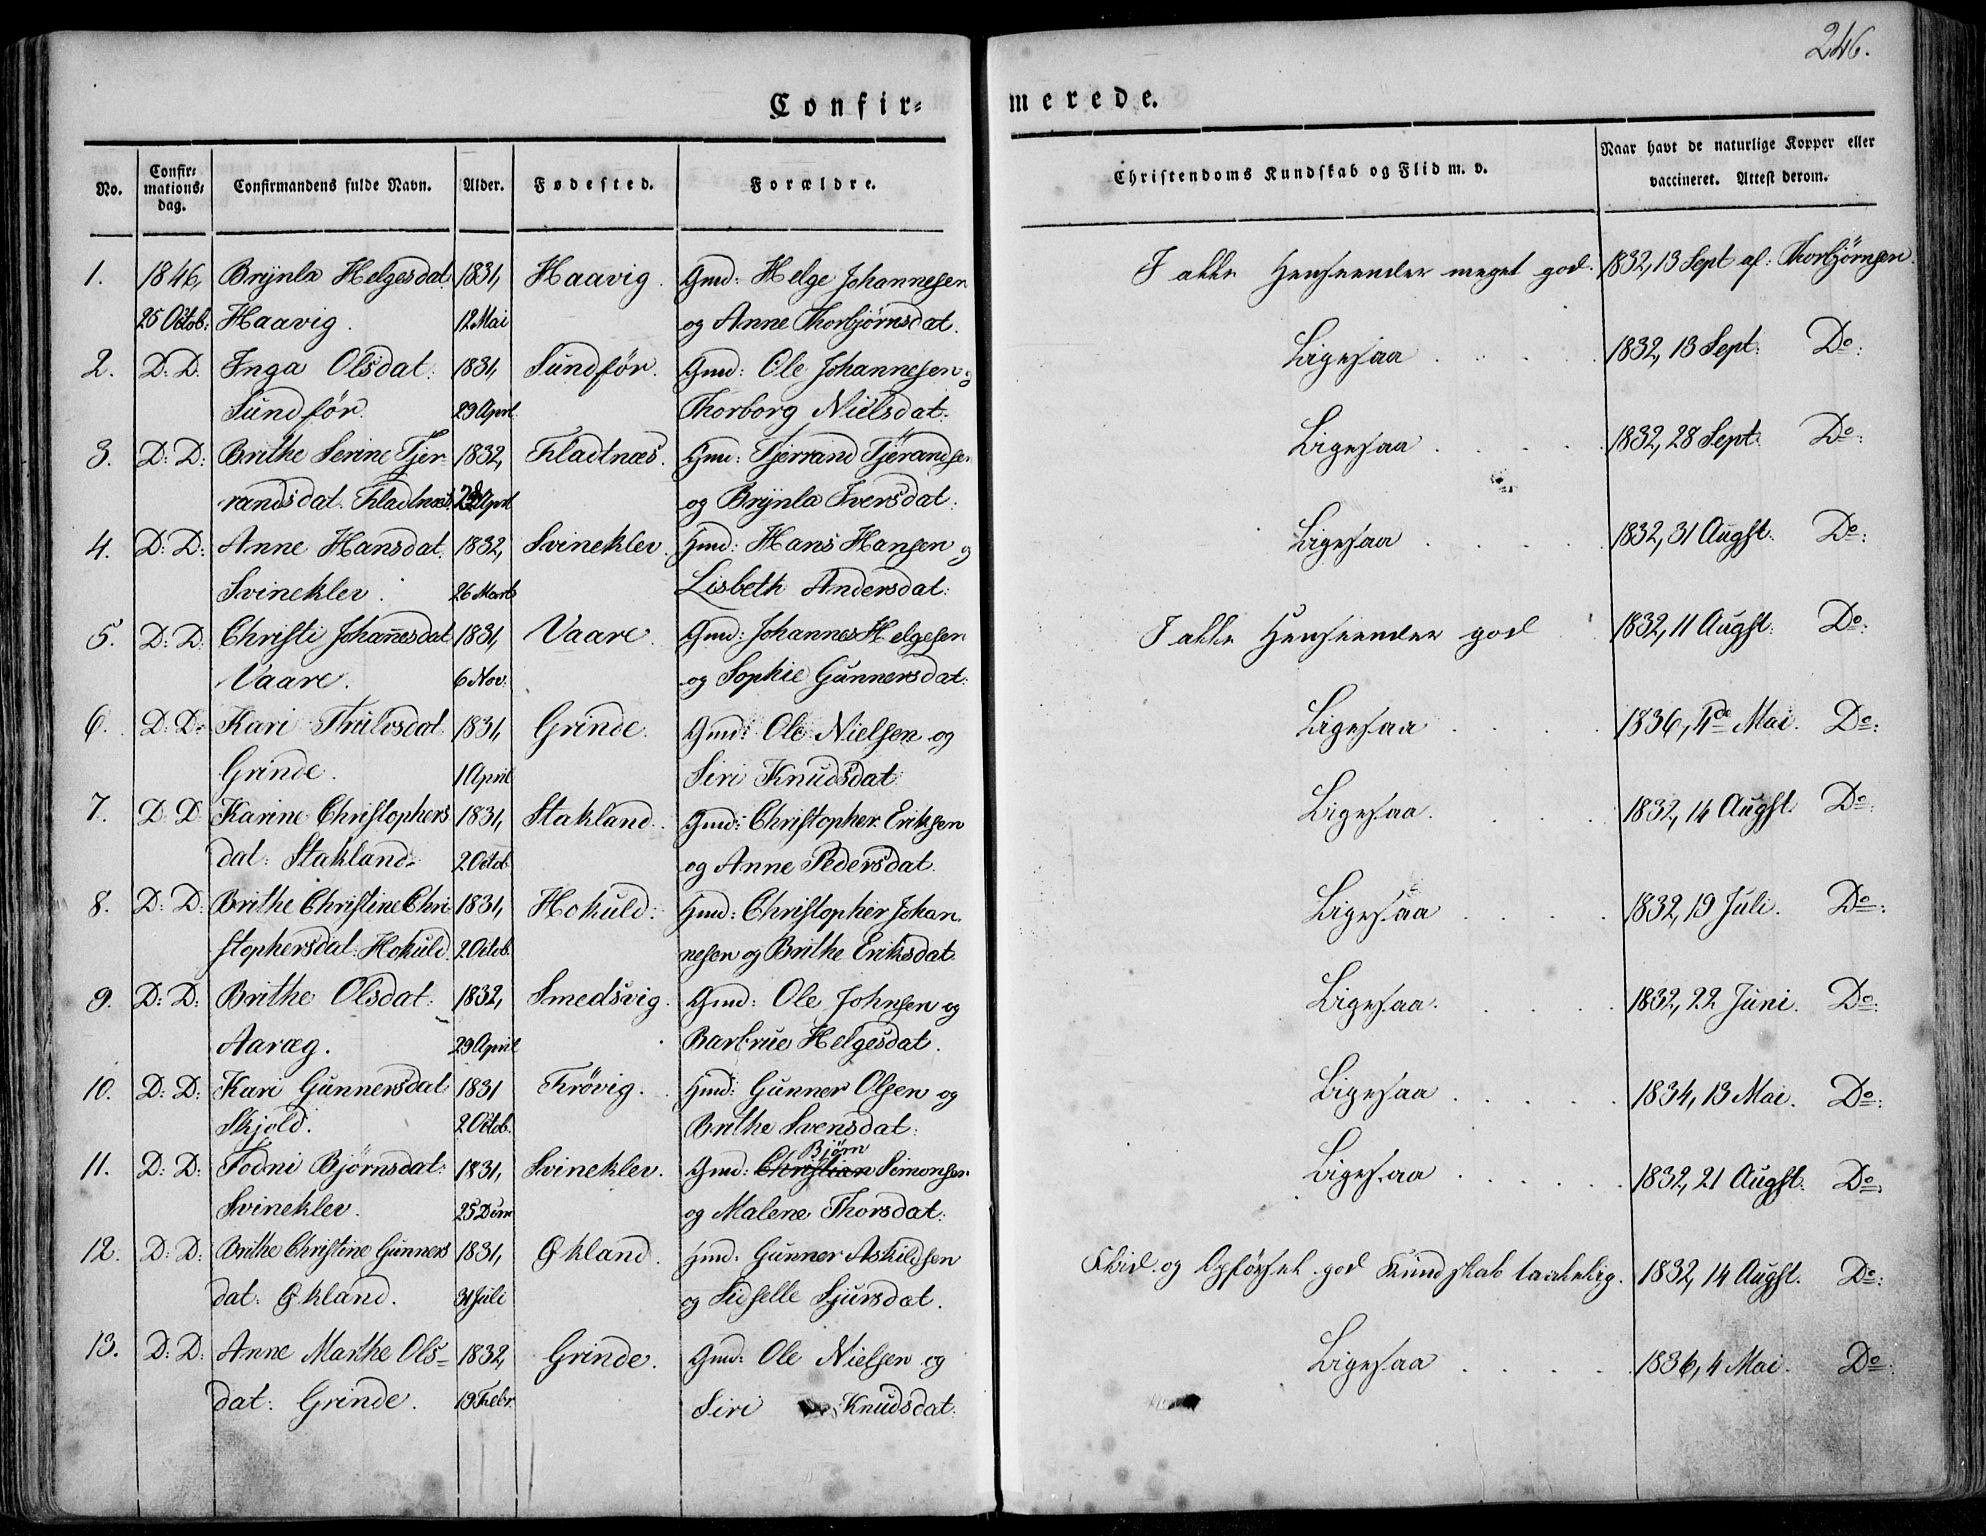 246.
Confir= merede.
No. Confir=mations=dag. Confirmandens fulde Navn. Alder. Fødested. Forældre. Christendoms Kundskab og Flid m. v. Naar havt de naturlige Kopper eller vaccineret. Attest derom.
1. 1846, Brynla Helgesdat 1831, Haavig. Gmd: Helge Johannesen I alle Henseender meget god. 1832, 13 Sept af: Thorbjørnsen
25 Octob: Haavig. 12 Mai og Anne Thorbjørnsdat.
2. D: D. Inga Olsdat: 1831, Sundfør. Gmd: Ole Johannesen og Ligesaa . . . 1832, 13 Sept: Do:
Sundfør. 29 Aprl. Thorborg Nielsdat:
3. D: D: Brithe Serine Tjer- 1832, Fladtnæs. Hmd: Tjerrand Tjerandsen Ligesaa . . . 1832, 28 Sept: Do:
randsdat. Fladtnæs. Aprl og Brynla Iversdat:
4. D: D: Anne Hansdat. 1832, Svineklev. Hmd: Hans Hansen og Ligesaa . . . 1832, 31 Augst. Do:
Svineklev. 26 Marts Lisbeth Andersdat:
5. D: D: Christi Johannesdat 1831, Vaare. Gmd: Johannes Helgesen I alle Henseender god 1832, 11 Augst: Do:
Vaare. 6 Nov: og Sophie Gunnersdat:
6. D: D: Kari Grinde. Gmd: Ole Nielsen og Ligesaa . . . 1836, 4de Mai. Do:
Grinde. 1 April Siri Knudsdat:
7. D: D Karine Christophers 1831, Stakland. Gmd: Christopher Eriksen Ligesaa. . . . 1832, 14 Augst. Do:
dat: Stakland. 2 Octob. og Anne Pedersdat.
8. D: D: Brithe Christine Chri 1831, Hokuld: Hmd: Christopher Johan Ligesaa . . . 1832, 19 Juli. Do:
stophersdat: Hokuld. 2 Octob. nesen og Brithe Eriksdat.
9. D: D: Brithe Olsdat: 1832, Smedsvig. Gmd: Ole Johnsen og Ligesaa. . . . 1832, 22 Juni. Do:
Aaræg. 29 April Barbrue Helgesdat.
10. D: D: Kari Gunnersdat 1831 Frøvig. Hmd: Gunner Olsen og Ligesaa . . . 1834, 13 Mai. Do:
Skjold. 2 Octob. Brithe Svensdat:
Bjørn
11. D: D: Todni Bjørnsdat: 1831, Svineklev. Gmd: Christian Simonsen Ligesaa . . . 1832, 21 Augst. Do:
Svineklev. 25 og Malene Thorsdat:
12. D: D: Brithe Christine Gunners 1831, Økland. Hmd: Gunner Askildsen Flid og Opførsel god Kundskab taalelig. 1832, 14 Augst. Do:
dat: Økland. 31 Juli og Sidselle Sjursdat.
13. D: D: Anne Marthe Ols- 1832, Grinde. Gmd: Ole Nielsen og Ligesaa . . . 1836, 4 Mai. Do:
dat: Grinde. 19 Febr. Siri Knudsdat: